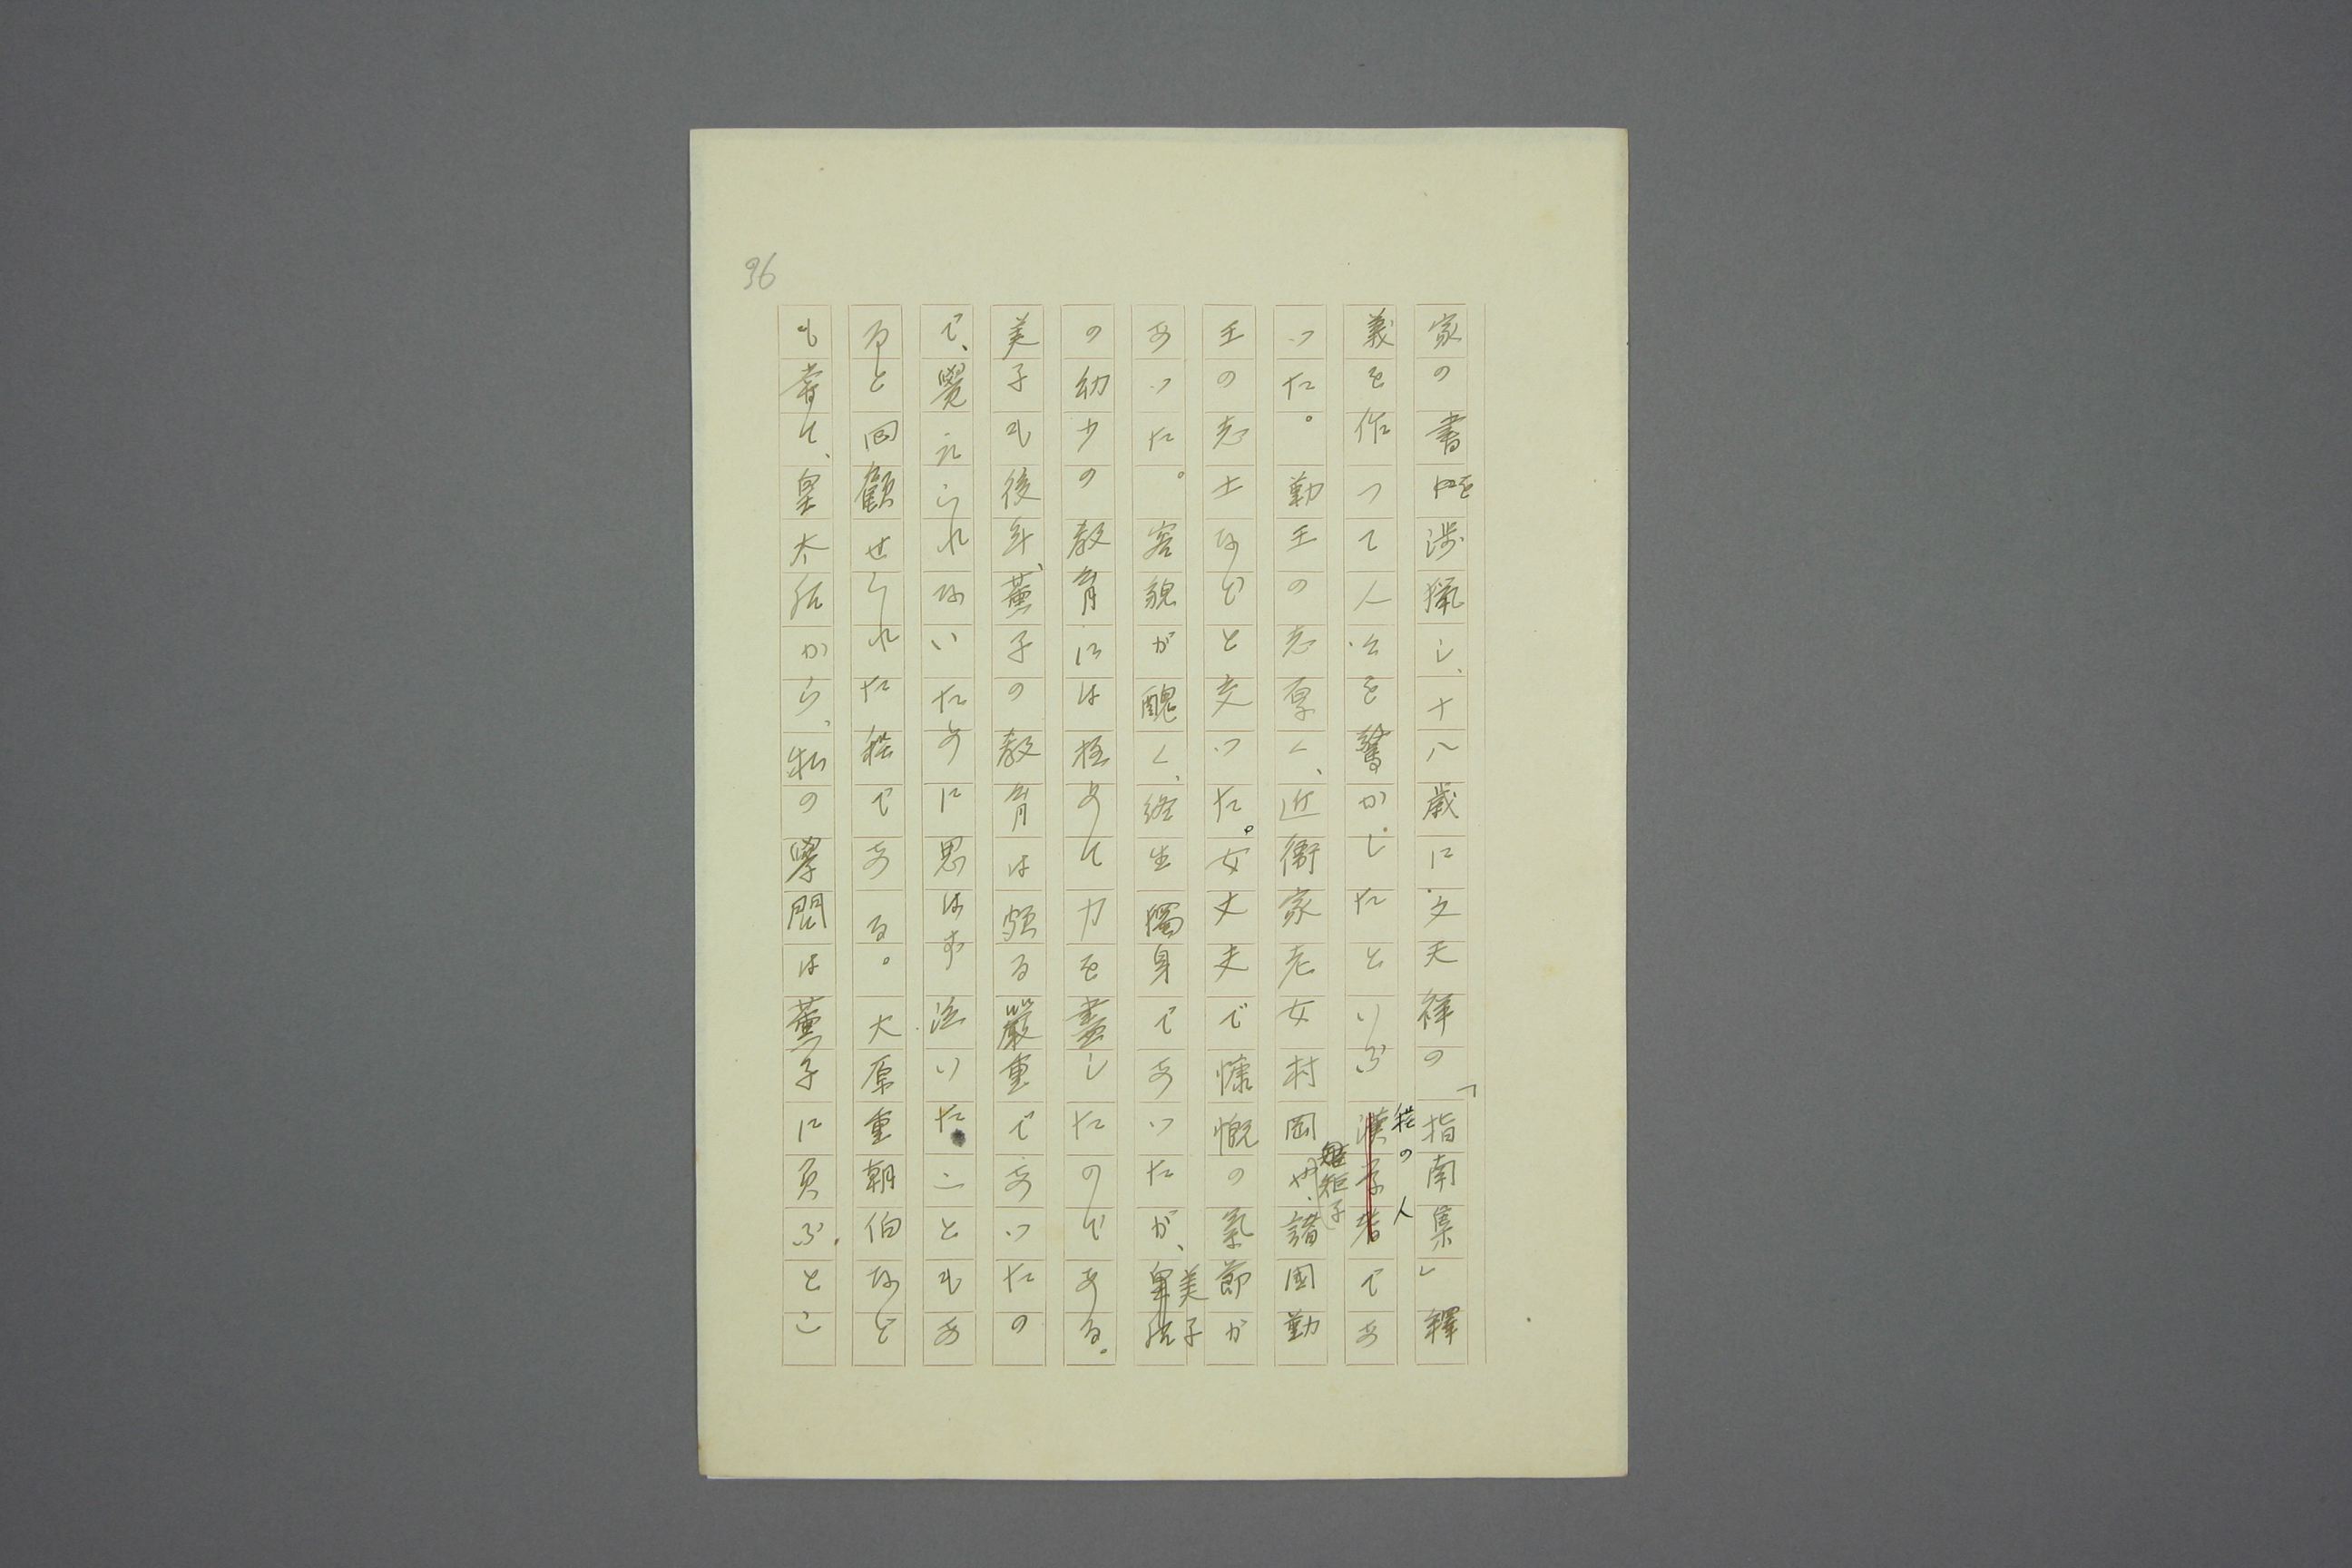 96
家の書を渉猟し、十八歳に文天祥の「指南集」釋
義を作つて人々を驚かしたといふ程の人であ
つた。勤王の志厚く、近衞家老女村岡（矩子）や、諸國勤
王の志士などと交つた。女丈夫で慷慨の氣節が
あつた。容貌が醜く、終生獨身であつたが、美子
の幼少の教育には極めて力を盡したのである。
美子も後年、薫子の教育は頗る嚴重であつたの
で、覺えられないために思はず泣いたこともあ
ると回顧せられた程である。大原重朝伯なども
も嘗て、皇太后から、私の學問は薫子に負ふとこ